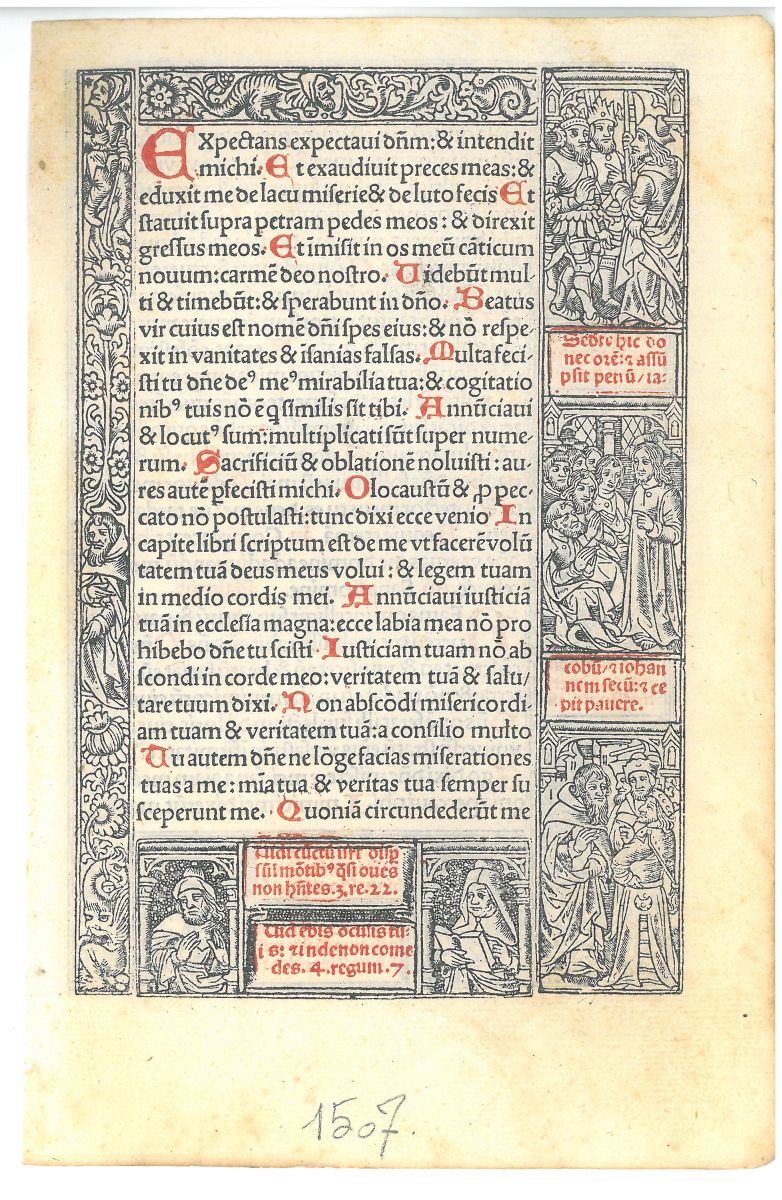 EXpectans expectaui dñm: & intendit
michi. Et exaudiuit preces meas: &
eduxit me de lacu miserie & de luto fecis Et
statuit supra petram pedes meos: & direxit
gressus meos. Et ĩmisit in os meũ cãticum
nouum: carmẽ deo nostro. Uidebũt mul-
ti & timebũt: & sperabunt in dño. Beatus
vir cuius est nomẽ dñi spes eius: & nõ respe-
xit in vanitates & ĩsanias falsas. Multa feci-
sti tu dñe deꝰ meꝰ mirabilia tua: & cogitatio
nibꝰ tuis nõ ẽ q similis sit tibi. Annũciaui
& locutꝰ sum: multiplicati sũt super nume-
rum. Sacrificiũ & oblationẽ noluisti: au-
res autẽ ꝑfecisti michi. Olocaustũ & ꝓ pec-
cato nõ postulasti: tunc dixi ecce venio In
capite libri scriptum est de me vt facerẽ volũ
tatem tuã deus meus volui: & legem tuam
in medio cordis mei. Annũciaui iusticiã
tuã in ecclesia magna: ecce labia mea nõ pro
hibebo dñe tu scisti. Iusticiam tuam nõ ab
scondi in corde meo: veritatem tuã & salu/
tare tuum dixi. Non abscõdi misericordi-
am tuam & veritatem tuã: a consilio multo
Tu autem dñe ne lõge facias miserationes
tuas a me: mĩa tua & veritas tua semper su
sceperunt me. Quoniã circundederũt me
Sedete hic do
nec orẽ: ⁊ assũ
psit petrũ/ ia-
cobũ/ ⁊ iohan
nem secũ: ⁊ ce
pit pauere.
sũ mõtibꝰ q̃si oues
non hñtes. 3. re. 22.
Tu videbis oculis tu-
is: ⁊ inde non come
des. 4. regum. 7.
1507.